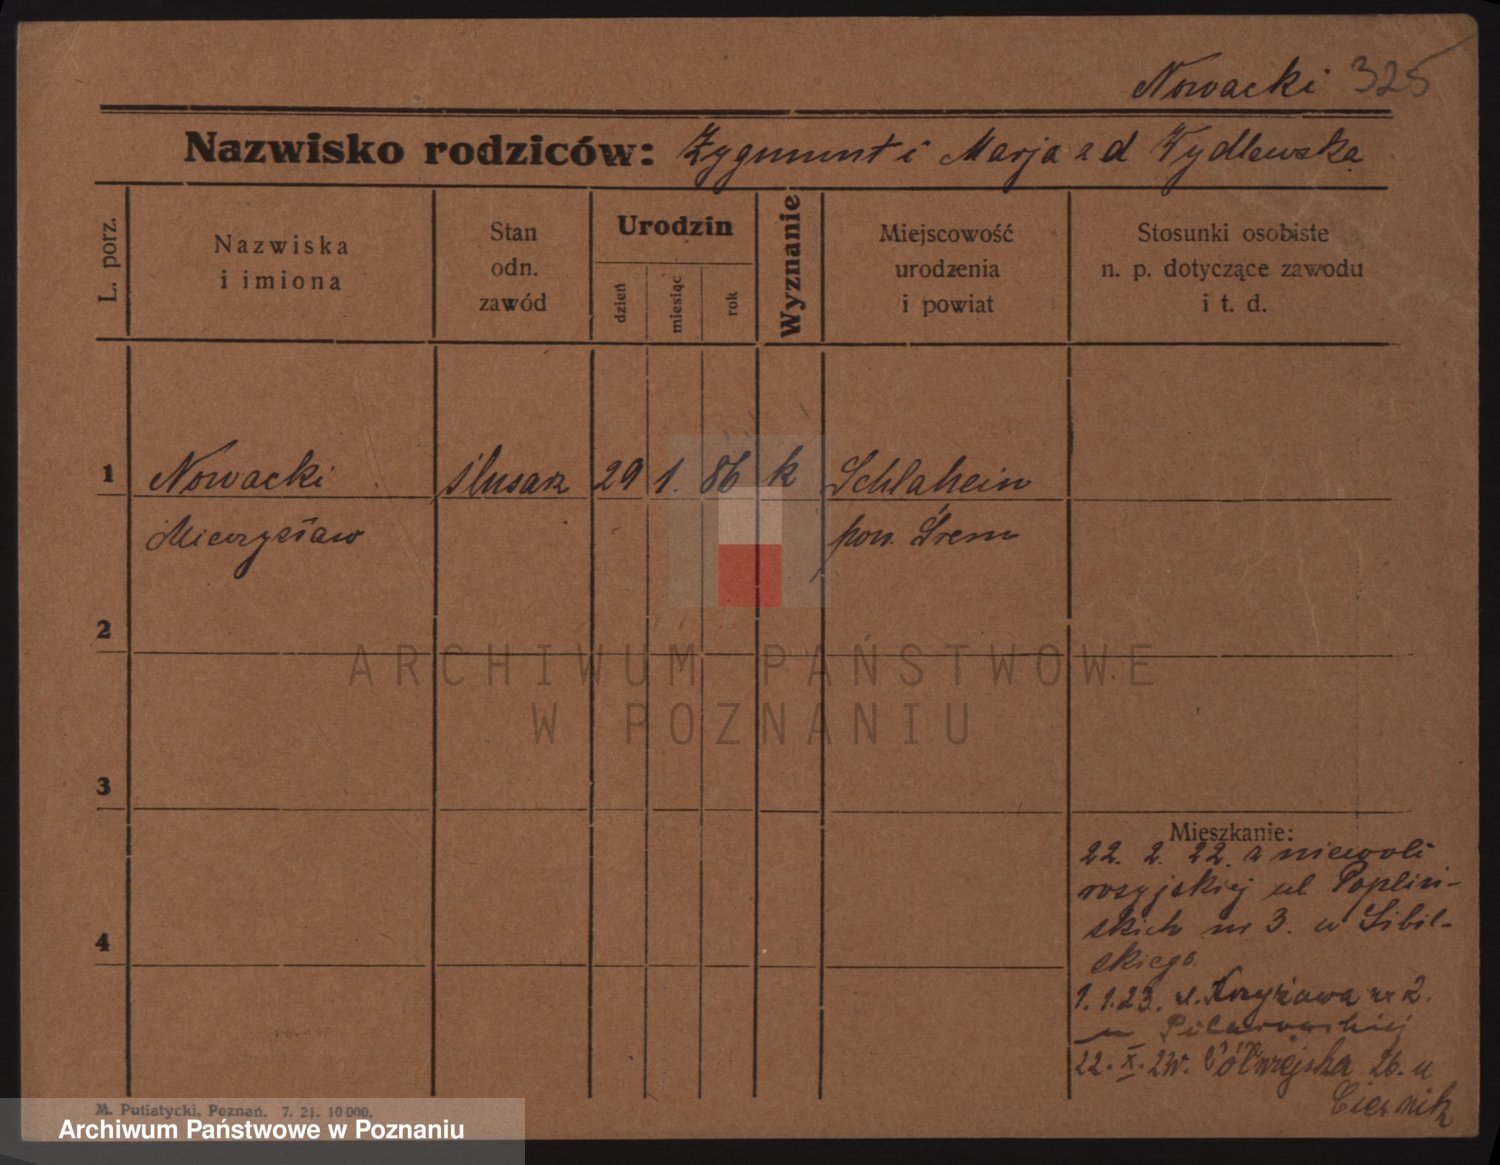 Nowacki 325
Nazwisko rodziców: Zygmunt i Marja z d Wydlewska
L. porz.
Nazwiska
i imiona
Stan
odn.
zawód
Urodzin
dzień
miesiąc
rok
Wyznanie
Miejscowość
urodzenia
i powiat
Stosunki osobiste
n. p. dotyczące zawodu
i t. d.
1 Nowacki ślusarz 29 1. 86 k Schlahein
Mieczysław pow. Śrem
2
ARCHIWUM PAŃSTWOWE
W POZNANIU
3
4
Mieszkanie:
22. 2. 22. z niewoli
rosyjskiej ul Popliń-
skich nr 3. u Sibil-
skiego.
1. 1. 23. ul. Krzyżowa nr 2.
u Pilarowskiej
22. X. 24. Półwiejska 26. u
Ciernik
M. Putiatycki, Poznań. 7. 21. 10 000.
Archiwum Państwowe w Poznaniu